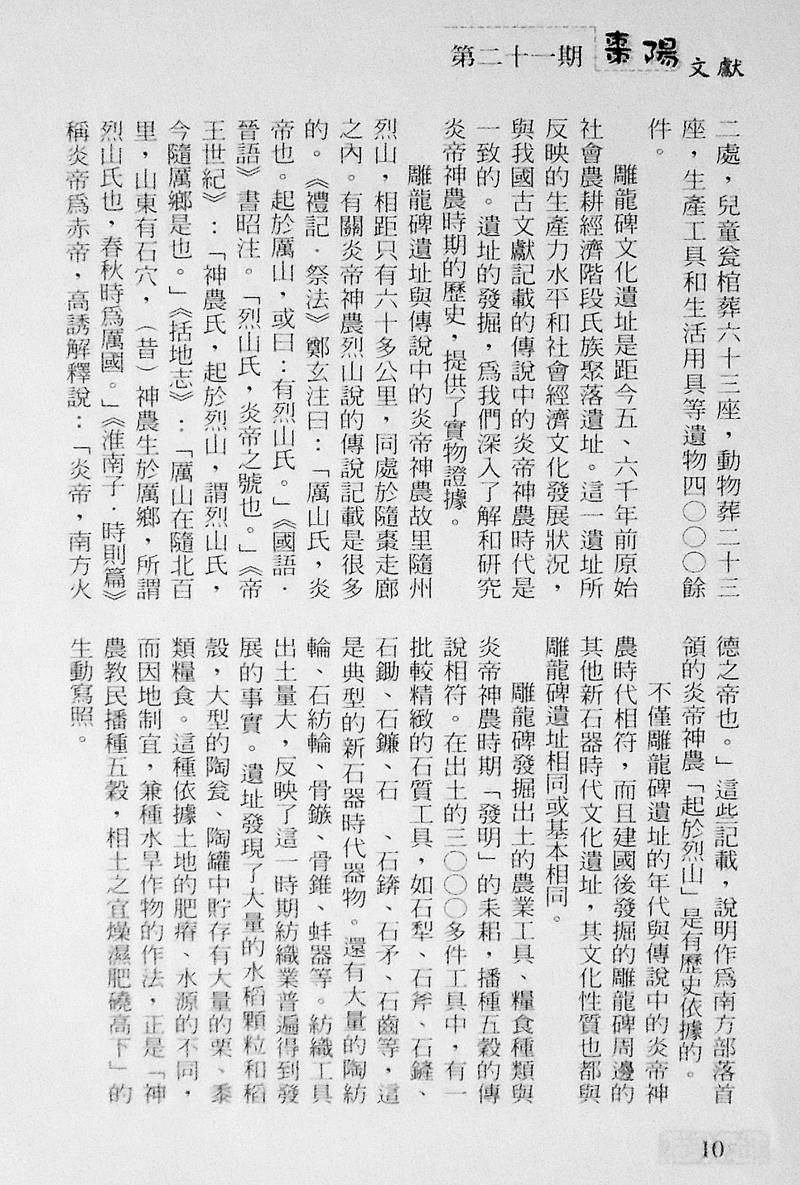 第二十一期 棗陽文獻
二處，兒童瓮棺葬六十三座，動物葬二十三
座，生產工具和生活用具等遺物四〇〇〇餘
件。
雕龍碑文化遺址是距今五、六千年前原始
社會農耕經濟階段氏族聚落遺址。這一遺址所
反映的生產力水平和社會經濟文化發展狀況，
與我國古文獻記載的傳說中的炎帝神農時代是
一致的。遺址的發掘，爲我們深入了解和研究
炎帝神農時期的歷史，提供了實物證據。
雕龍碑遺址與傳說中的炎帝神農故里隨州
烈山，相距只有六十多公里，同處於隨棗走廊
之內。有關炎帝神農烈山說的傳說記載是很多
的。《禮記．祭法》鄭玄注曰：「厲山氏，炎
帝也。起於厲山，或曰：有烈山氏。」《國語．
晉語》書昭注。「烈山氏，炎帝之號也。」《帝
王世紀》：「神農氏，起於烈山，謂烈山氏，
今隨厲鄉是也。」《括地志》：「厲山在隨北百
里，山東有石穴，（昔）神農生於厲鄉，所謂
烈山氏也，春秋時爲厲國。」《淮南子．時則篇》
稱炎帝爲赤帝，高誘解釋說：「炎帝，南方火
德之帝也。」這些記載，說明作爲南方部落首
領的炎帝神農「起於烈山」是有歷史依據的。
不僅雕龍碑遺址的年代與傳說中的炎帝神
農時代相符，而且建國後發掘的雕龍碑周邊的
其他新石器時代文化遺址，其文化性質也都與
雕龍碑遺址相同或基本相同。
雕龍碑發掘出土的農業工具、糧食種類與
炎帝神農時期「發明」的耒耜，播種五穀的傳
說相符。在出土的三〇〇〇多件工具中，有一
批較精緻的石質工具，如石犁、石斧、石鏟、
石鋤、石鐮、石　、石錛、石矛、石齒等，這
是典型的新石器時代器物。還有大量的陶紡
輪、石紡輪、骨鏃、骨錐、蚌器等。紡織工具
出土量大，反映了這一時期紡織業普遍得到發
展的事實。遺址發現了大量的水稻顆粒和稻
殼，大型的陶瓮、陶罐中貯存有大量的栗、黍
類糧食。這種依據土地的肥瘠、水源的不同，
而因地制宜，兼種水旱作物的作法，正是「神
農教民播種五穀，相土之宜燥濕肥磽高下」的
生動寫照。
10